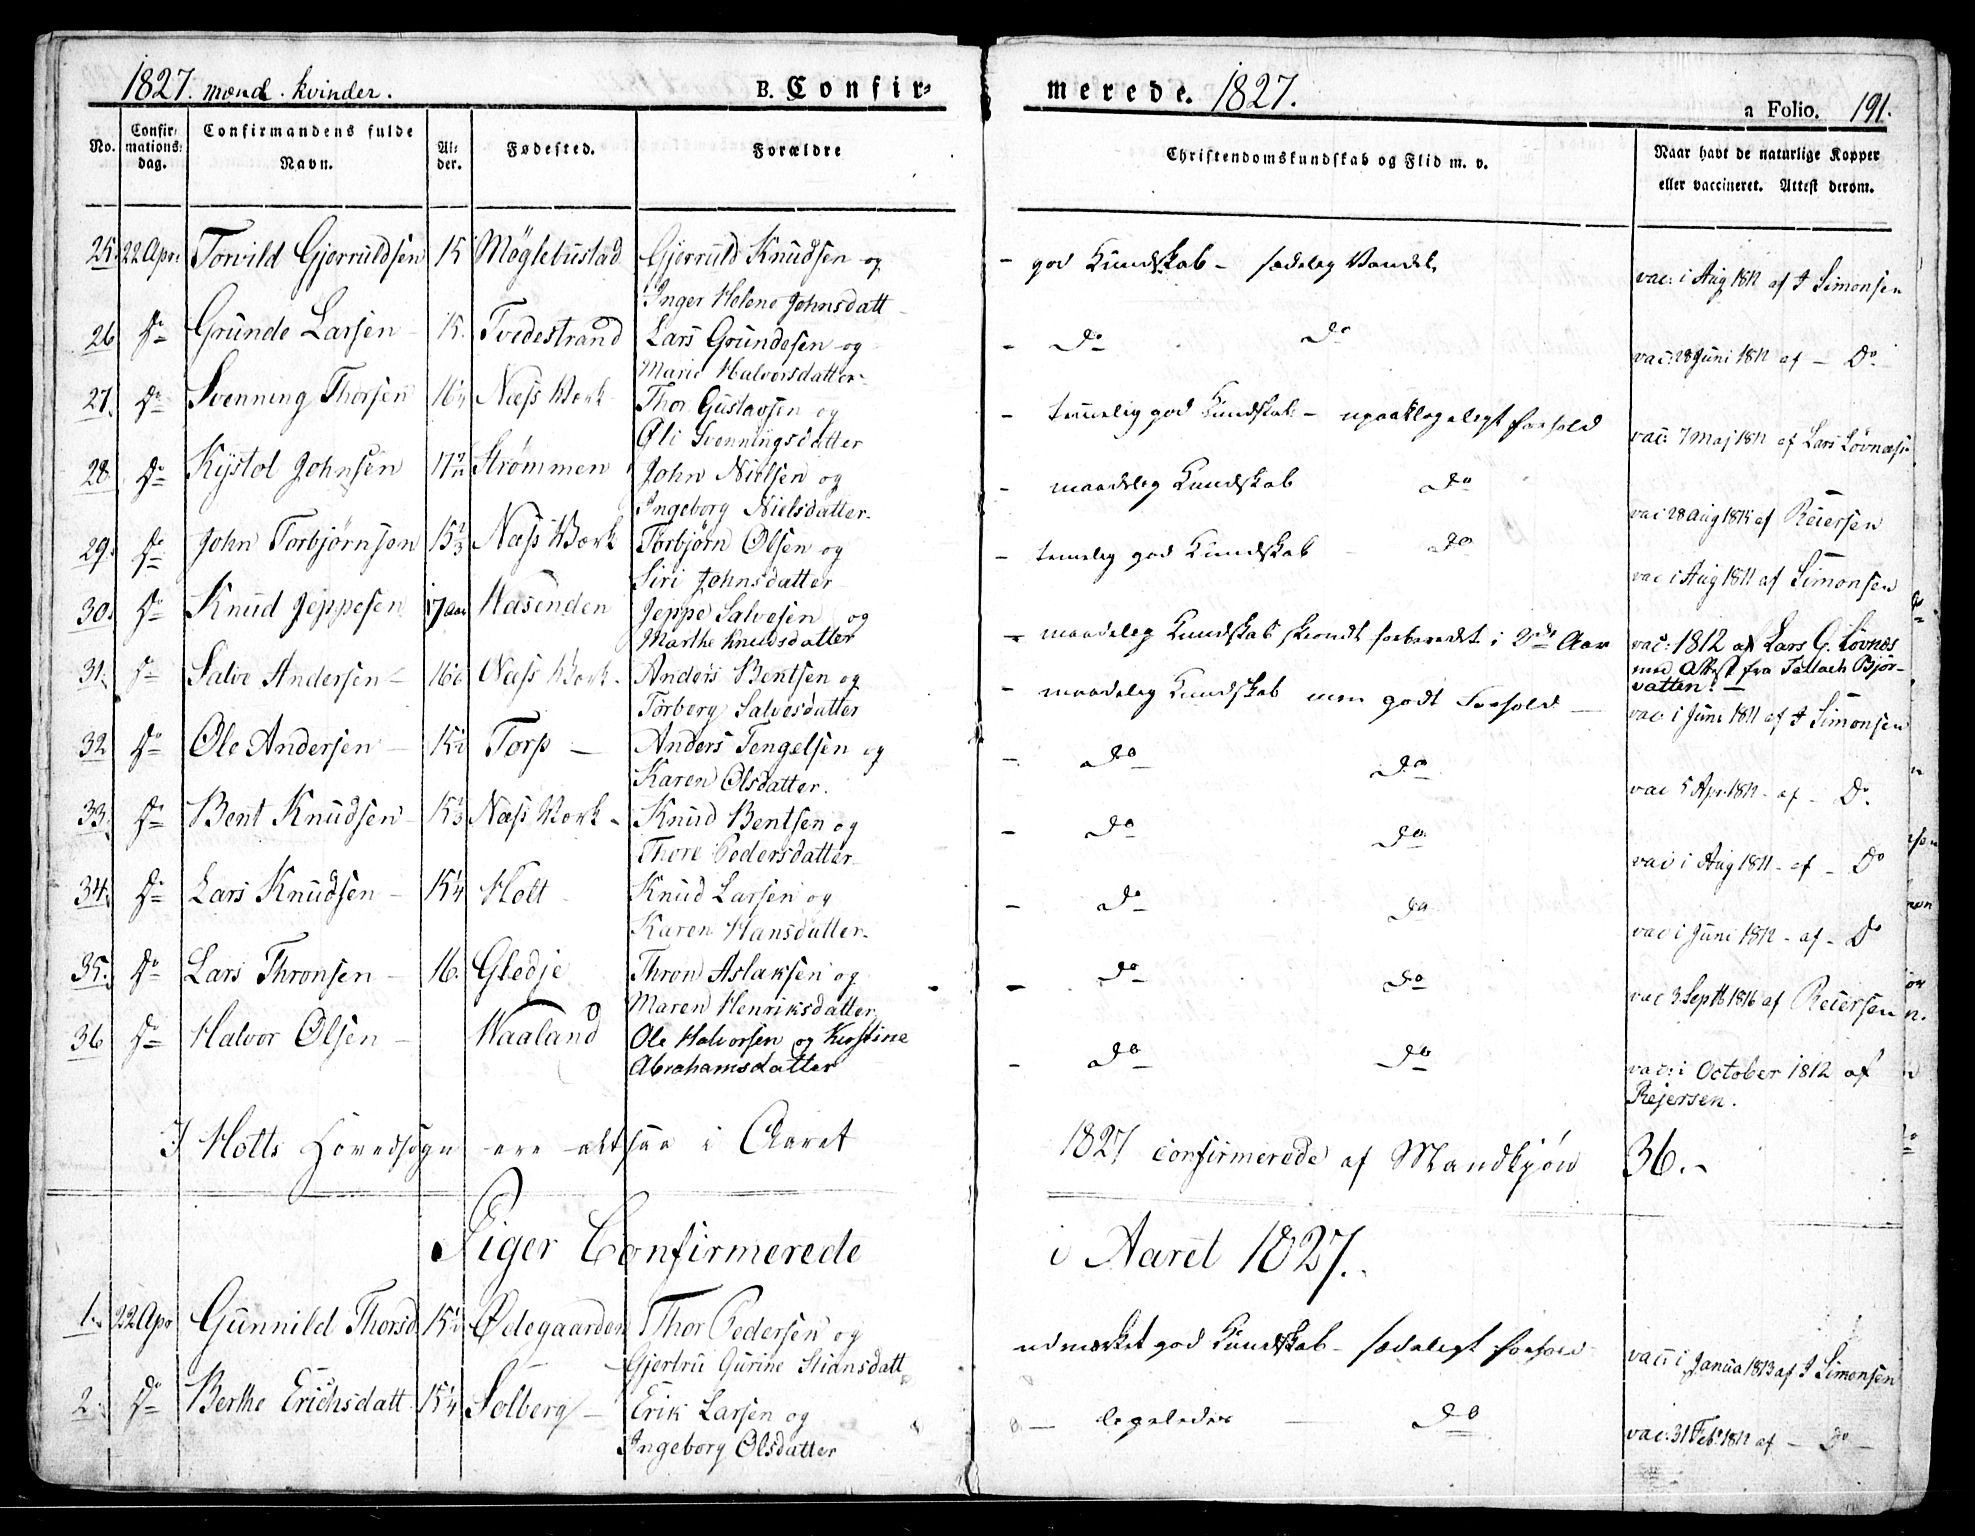 1827. mænd. kvinder. B. Confir- merede. 1827. a Folio. 191.
No. Confir- mations- dag. Confirmandens fulde Navn. Al- der. Fødested. Forældre Christendomskundskab og Flid m. v. Naar havt de naturlige Kopper eller vaccineret. Attest derom.
25. 22 Apr. Torvild Gjerruldsen 15 Møglebustad Gjerruld Knudsen og - god Kundskab - sædelig Vandel vac: i Aug 1812 af J Simonsen
Inger Helene Johnsdatt
26 Do Grunde Larsen 15. Tvedestrand Lars Grundesen og - Do Do vac: 28 Juni 1812 af - Do
Marie Halvorsdatter
27. Do Svenning Thorsen Næss Værk Thor Gustavsen og - temmelig god Kundskab - upaaklageligt Forhold vac: 7 Maj 1812 af Lars Løvnæs
Øli Svenningsdatter
28. Do Kystol Johnsen Strømmen John Nielsen og - maadelig Kundskab Do vac 28 Aug af Reiersen
Ingeborg Nielsdatter
29. Do John Torbjørnsen 15 1/3 Næss Værk Torbjørn Olsen og - temelig god Kundskab - Do vac i Aug 1811 af Simonsen
Siri Johnsdatter
30. Do Knud Jeppesen 17 aar Hasenden Jeppe Salvesen og - maadelig Kundskab skiøndt forberedt i 2de Aar vac: 1812 af Lars G. Løvnes
Marthe Knudsdatter med Attest fra Tallach Bjør-
vatten. -
31. Do Salve Andersen Næss Værk - Anders Bentsen og - maadelig Kundskab men godt Forhold - vac i Juni 1811 af J Simonsen
Torberg Salvesdatter
32 Do Ole Andersen - 15 1/2 Torp - Anders Tengelsen og - Do Do vac 5 Apr. 1812 - af - Do
Karen Olsdatter.
33. Do Bent Knudsen - 15 1/3 Næss Værk - Knud Bentsen og - Do Do vac i Aug 1811 - af - Do
Thore Pedersdatter
34. Do Lars Knudsen - 15 1/4 Holt - Knud Larsen og - Do Do vac i Juni 1812 - af - Do
Karen Hansdatter
35. Do Lars Thronsen - 16. Gledje Thron Aslaksen og - Do Do vac 3 Septb 1816 af Reiersen
Maren Henriksdatter
36 Do Halvor Olsen - Waaland Ole Halvorsen og Kirstine - Do Do vac: i October 1812 af
Abrahamsdatter Rejersen.
I Holts Hovedsogn ere altsaa i Aaret 1827 confirmerede af Mandkjøn 36. -
Piger Confirmerede i Aaret 1827.
1. 22 Apr Gunnild Thorsd 15 1/2 Ødegaarden Thor Pedersen og udmærket god Kundskab - sædeligt Forhold vac: i Janua 1813 af J Simonsen
Gjertru Gurine Stiansdatt
2. Do Berthe Erichsdatt 15 1/4 Solberg - Erik Larsen og - legeledes - Do vac: 31 Feb. 1812 af - Do -
Ingeborg Olsdatter